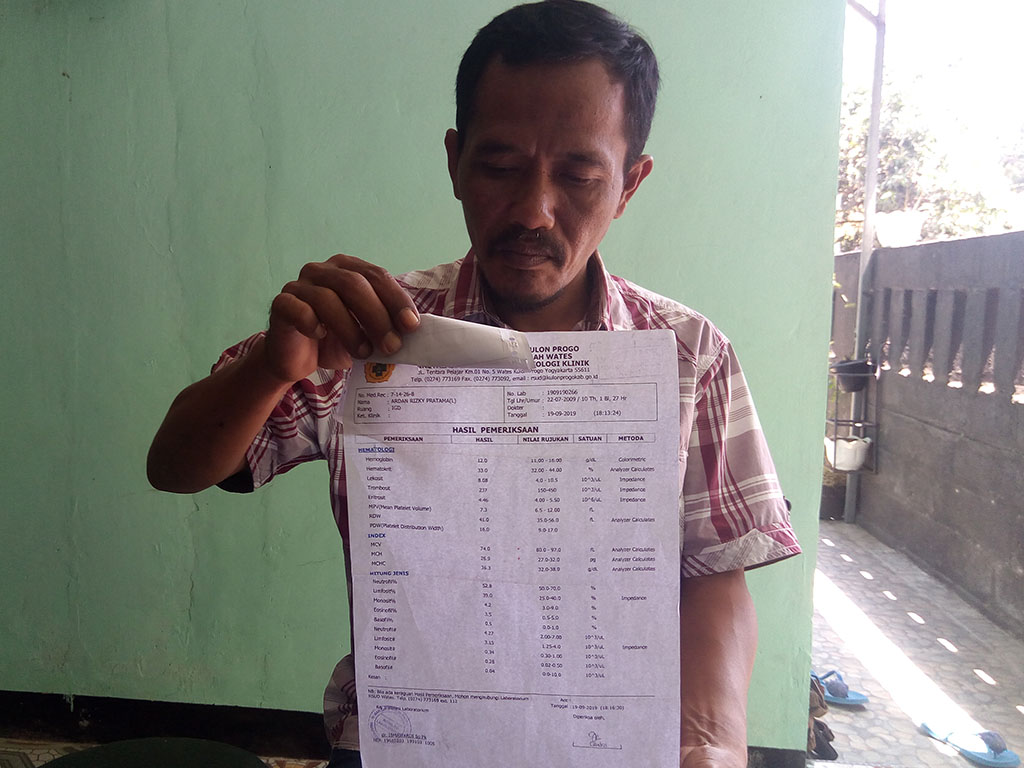 ULON PROGO
AH WATES
OLOGI KLINIK
Jl. Tentara Pelajar Km.01 No. 5 Wates Kulon Progo Yogyakarta 55611
Telp. (0274) 773169 Fax. (0274) 773092, email : rsud@kulonprogokab.go.id
No. Med.Rec : 7-14-26-8 No. Lab : 1909190266
Nama : ARDAN RIZKY PRATAMA(L) Tgl Lhr/Umur : 22-07-2009 / 10 Th, 1 Bl, 27 Hr
Ruang : IGD Dokter :
Ket. Klinik : Tanggal : 19-09-2019 (18:13:24)
HASIL PEMERIKSAAN
PEMERIKSAAN HASIL NILAI RUJUKAN SATUAN METODA
HEMATOLOGI
Hemoglobin 12.0 11.00 - 16.00 g/dL Colorimetric
Hematokrit 33.0 32.00 - 44.00 % Analyzer Calculates
Lekosit 8.08 4.0 - 10.5 10^3/uL Impedance
Trombosit 237 150-450 10^3/uL Impedance
Eritrosit 4.46 4.00 - 5.50 10^6/uL Impedance
MPV(Mean Platelet Volume) 7.3 6.5 - 12.00 fL
RDW 41.0 35.0-56.0 fL Analyzer Calculates
PDW(Platelet Distribution Width) 16.0 9.0-17.0
INDEX
MCV 74.0 * 80.0 - 97.0 fL Analyzer Calculates
MCH 27.0-32.0 pg Analyzer Calculates
MCHC 36.3 32.0-38.0 g/dL Analyzer Calculates
HITUNG JENIS
Neutrofil% 52.8 50.0-70.0 %
Limfosit% 39.0 25.0-40.0 % Impedance
Monosit% 4.2 3.0-9.0 %
Eosinofil% 3.5 0.5-5.0 %
Basofil% 0.5 0.0-1.0 %
Neutrofil# 4.27 2.00-7.00 10^3/uL
Limfosit# 3.15 1.25-4.0 10^3/uL Impedance
Monosit# 0.34 0.30-1.00 10^3/uL
Eosinofil# 0.28 0.02-0.50 10^3/uL
Basofil# 0.04 0.0-10.0 10^3/uL
Kesan :
NB. Bila ada keraguan Hasil Pemeriksaan, Mohon menghubungi Laboratorium
RSUD Wates. Telp. (0274) 773169 ext. 112
Acc :
Tanggal : 19-09-2019 (18:16:30)
Laboratorium
Diperiksa oleh,